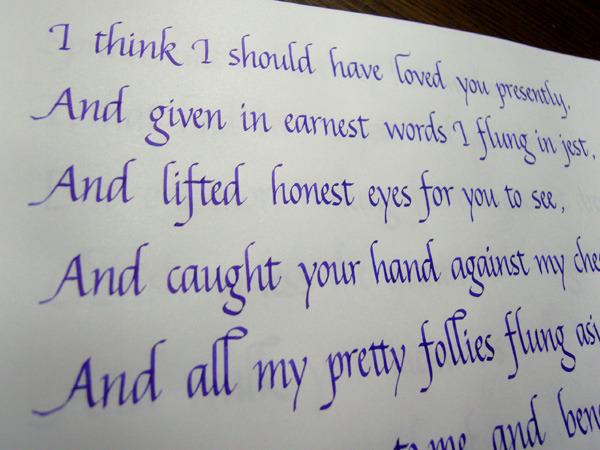 I think I should have loved you presently,
And given in earnest words I flung in jest,
And lifted honest eyes for you to see,
And caught your hand against my che
And all my pretty follies flung asi
to me, and ben